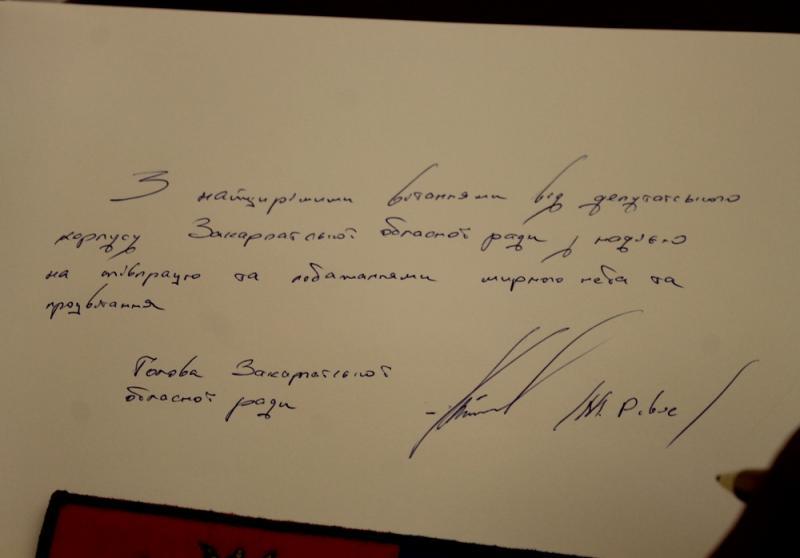 З найщирішими вітаннями від депутатського
корпусу Закарпатської обласної ради з надією
на співпрацю та побажаннями мирного неба та
процвітання
Голова Закарпатської
обласної ради
М. Рівіс